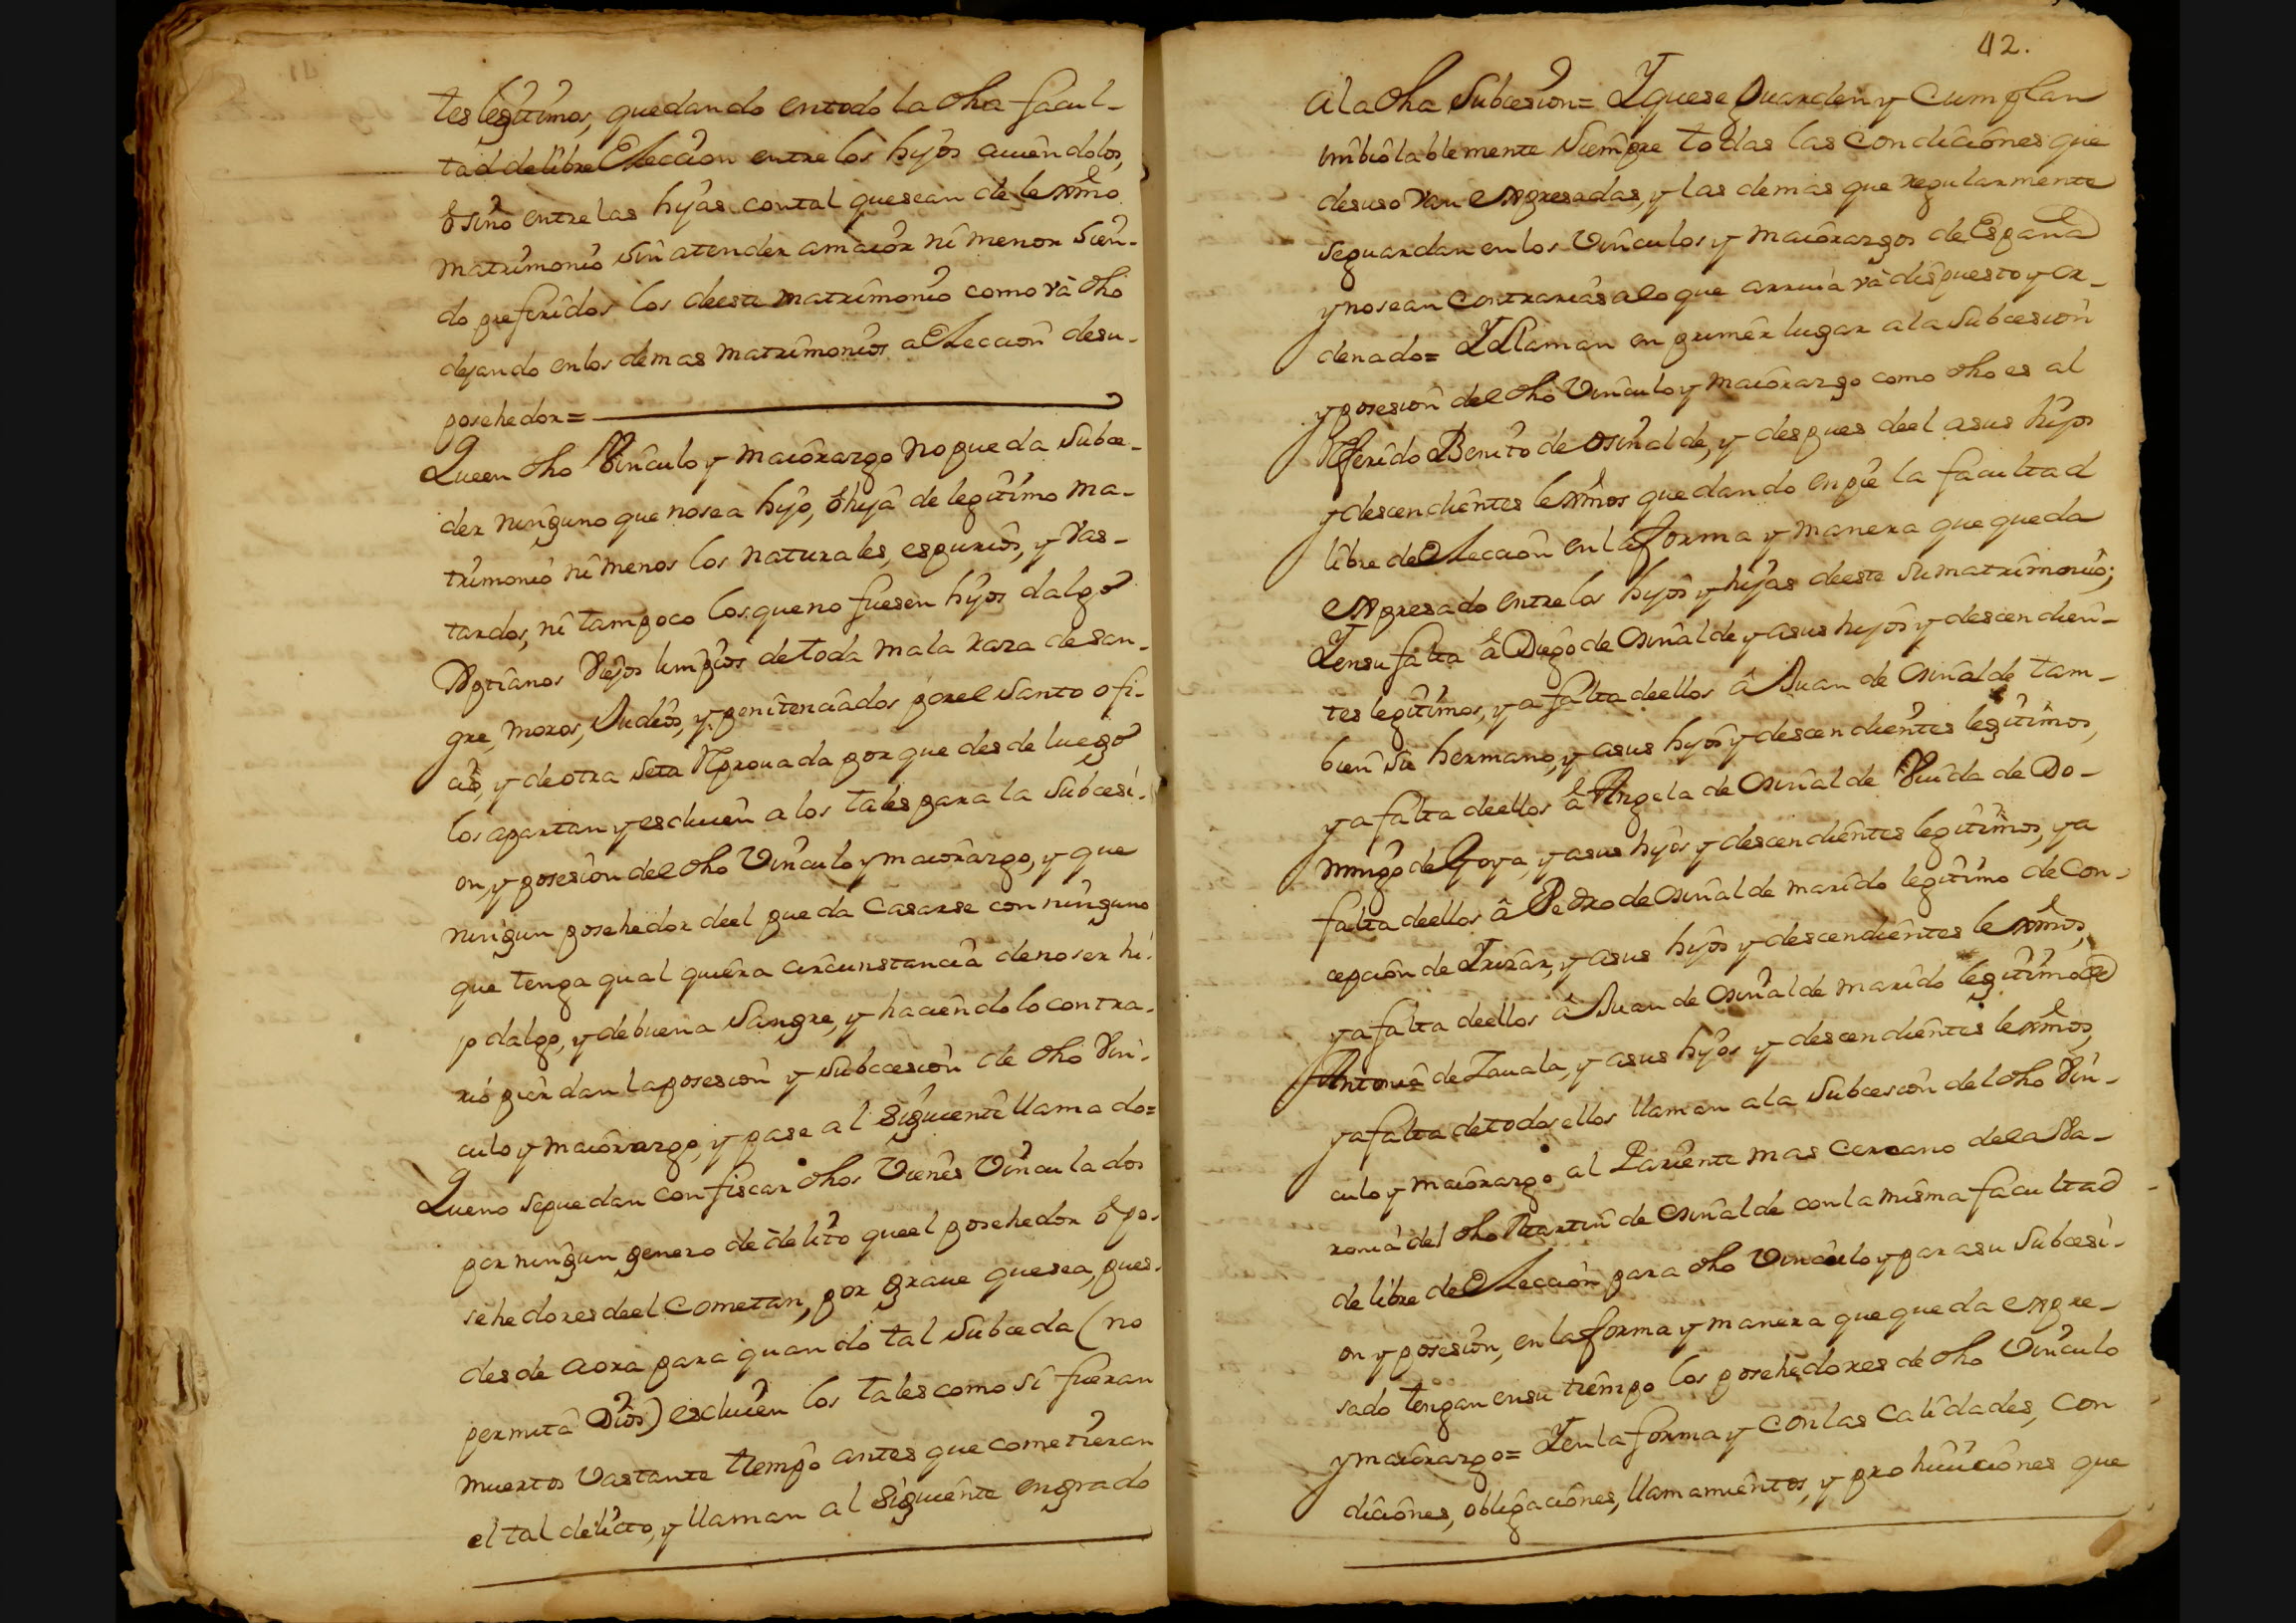 tes legitimos, quedando en todo la dha facul-
tad de libre Eleccion entre los hijos auiendolos,
ò sino entre las hijas con tal que sean de lexmo
matrimonio sin atender a maior ni menor sien-
do preferidos los de este matrimonio como và dho
dejando en los demas matrimonios a Eleccion de su
posehedor=
Que en dho Vinculo y maiorazgo no pueda Subce-
der ninguno que no sea hijo, ò hija de legitimo ma-
trimonio ni menos los naturales, espurios, y Vas-
tardos, ni tampoco los que no fuesen hijos dalgo
Xptianos Viejos limpios de toda mala raza de san-
gre, moros, Judios, y penitenciados por el Santo ofi-
cio, y de otra Seta Reprouada por que desde luego
los apartan y escluien a los tales para la Subcesi-
on, y posesion del dho Vinculo y maiorazgo, y que
ningun posehedor deel pueda Casarse con ninguno
que tenga qual quiera circunstancia de no ser hi-
jo dalgo, y de buena Sangre, y haciendo lo contra-
rio pierdan la posesion y Subcesion de dho Vin-
culo y maiorazgo, y pase al Siguiente llamado=
Que no se puedan confiscar dhos Vienes Vinculados
por ningun genero de delito que el posehedor ò po-
sehedores deel Cometan, por graue que sea, pues
desde aora para quando tal Subceda (no
permita Dios) escluien los tales como si fueran
muertos Vastante tiempo antes que cometieran
el tal delicto, y llaman al Siguiente en grado
42.
a la dha Subcesion= Y que se Guarden y Cumplan
imbiolablemente Siempre todas las Condiciones que
de suso Van Expresadas, y las demas que regularmente
se guardan en los Vinculos y maiorazgos de España
y no sean Contrarias a lo que arriua và dispuesto y or-
denado= Y Llaman en primer lugar a la Subcesion
y posesion del dho Vinculo y maiorazgo como dho es al
Referido Benito de Osinalde, y despues deel a sus hijos
y descendientes lexmos quedando en pie la facultad
libre de Eleccion en la forma y manera que queda
Expresado entre los hijos y hijas de este su matrimonio;
Y en su falta à Diego de Osinalde y a sus hijos y descendien-
tes legitimos, y a falta de ellos â Juan de Osinalde tam-
bien su hermano, y a sus hijos y descendientes legitimos,
y a falta de ellos à Angela de Osinalde Viuda de Do-
mingo de Goya, y a sus hijos y descendientes legitimos, y a
falta de ellos â Pedro de Osinalde marido legitimo de Con-
cepcion de Irizar, y a sus hijos y descendientes lexmos,
y a falta de ellos â Juan de Osinalde marido legitimo de
Antonia de Zauala, y a sus hijos y descendientes lexmos,
y a falta de todos ellos llaman a la Subcesion del dho Vin-
culo y maiorazgo al Pariente mas Cercano de la Va-
ronia del dho Martin de Osinalde con la misma facultad
de libre de Eleccion para dho Vinculo y para su Subcesi-
on y posesion, en la forma y manera que queda expre-
sado tengan en su tiempo los posehedores de dho Vinculo
y maiorazgo= Y en la forma y Con las Calidades, Con
diciones, obligaciones, llamamientos, y prohiuiciones que